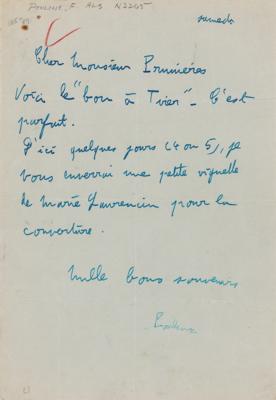 Poulenc, F ALS N2265
samedi
Cher Monsieur Prunières
Voici le "bon à Tirer" – C'est
parfait.
D'ici quelques jours (4 ou 5), je
vous enverrai une petite vignette
de Marie Laurencin pour la
couverture.
Mille bons souvenirs
Poulenc